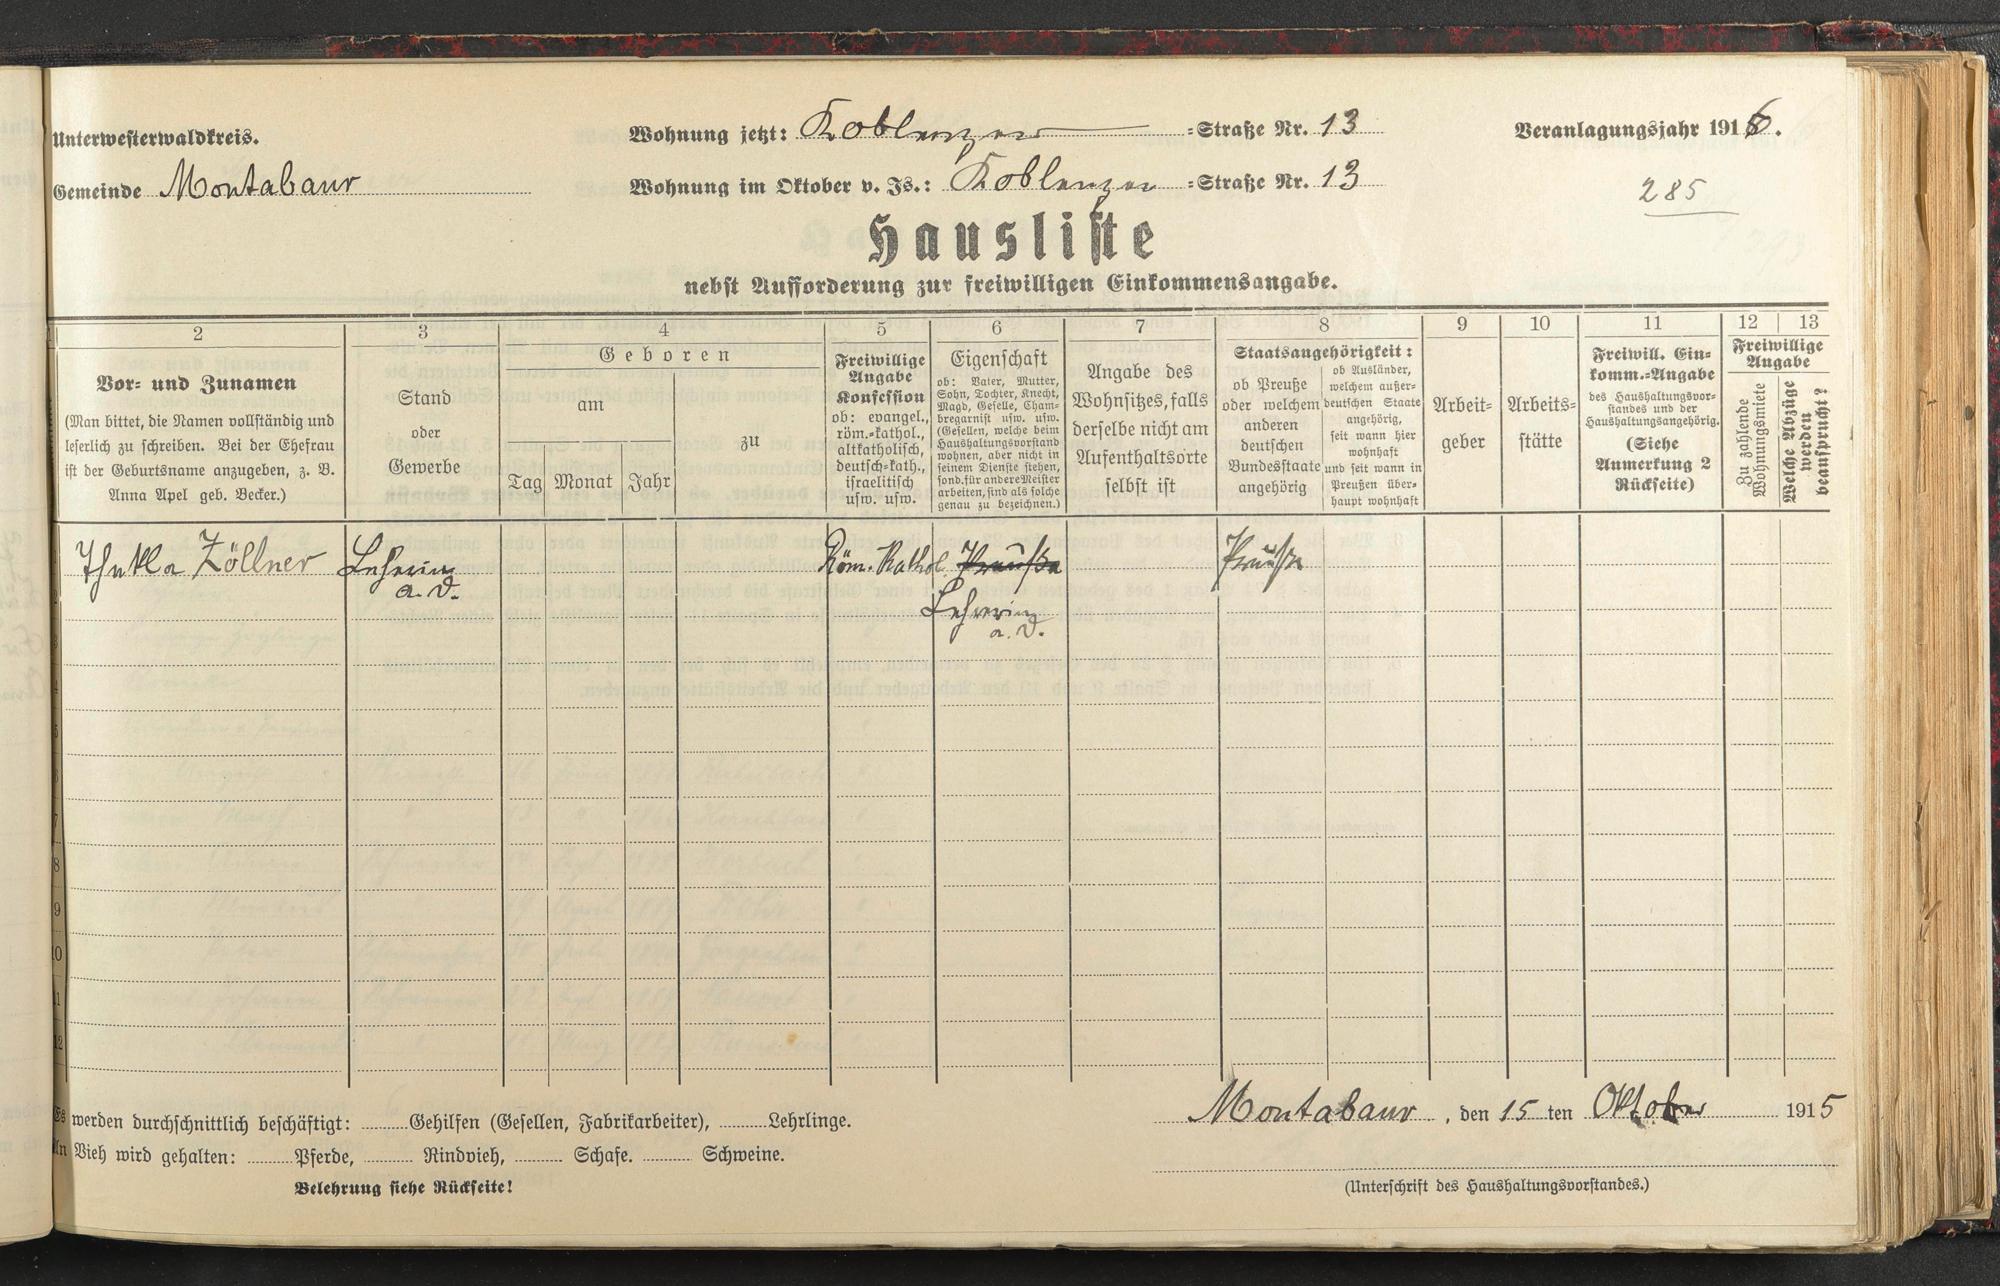 Unterwesterwaldkreis.
Wohnung jetzt: Koblenzer =Straße Nr. 13
Veranlagungsjahr 1916.
Gemeinde Montabaur
Wohnung im Oktober v. Js.: Koblenzer =Straße Nr. 13
285
Hausliste
nebst Aufforderung zur freiwilligen Einkommensangabe.
2 3 4 5 6 7 8 9 10 11 12 13
Vor- und Zunamen
(Man bittet, die Namen vollständig und
leserlich zu schreiben. Bei der Ehefrau
ist der Geburtsname anzugeben, z. B.
Anna Apel geb. Becker.)
Stand
oder
Gewerbe
Geboren
am
Tag Monat Jahr
zu
Freiwillige
Angabe
Konfession
ob: evangel.,
röm.-kathol.,
altkatholisch,
deutsch-kath.,
israelitisch
usw. usw.
Eigenschaft
ob: Vater, Mutter,
Sohn, Tochter, Knecht,
Magd, Geselle, Cham-
bregarnist usw. usw.
(Gesellen, welche beim
Haushaltungsvorstand
wohnen, aber nicht in
seinem Dienste stehen,
sond. für andere Meister
arbeiten, sind als solche
genau zu bezeichnen.)
Angabe des
Wohnsitzes, falls
derselbe nicht am
Aufenthaltsorte
selbst ist
Staatsangehörigkeit:
ob Preuße
oder welchem
anderen
deutschen
Bundesstaate
angehörig
ob Ausländer,
welchem außer-
deutschen Staate
angehörig,
seit wann hier
wohnhaft
und seit wann in
Preußen über-
haupt wohnhaft
Arbeit-
geber
Arbeits-
stätte
Freiwill. Ein-
komm.-Angabe
des Haushaltungsvor-
standes und der
Haushaltungsangehörig.
(Siehe
Anmerkung 2
Rückseite)
Freiwillige
Angabe
Zu zahlende
Wohnungsmiete
Welche Abzüge
werden
beansprucht?
Thekla Zöllner Lehrerin Röm. Kathol. Preuße Preuße
a. D. Lehrerin
a. D.
3
4
5
6
7
8
9
10
11
12
Es werden durchschnittlich beschäftigt: Gehilfen (Gesellen, Fabrikarbeiter), Lehrlinge.
An Vieh wird gehalten: Pferde, Rindvieh, Schafe. Schweine.
Belehrung siehe Rückseite!
Montabaur, den 15 ten Oktober 1915
(Unterschrift des Haushaltungsvorstandes.)